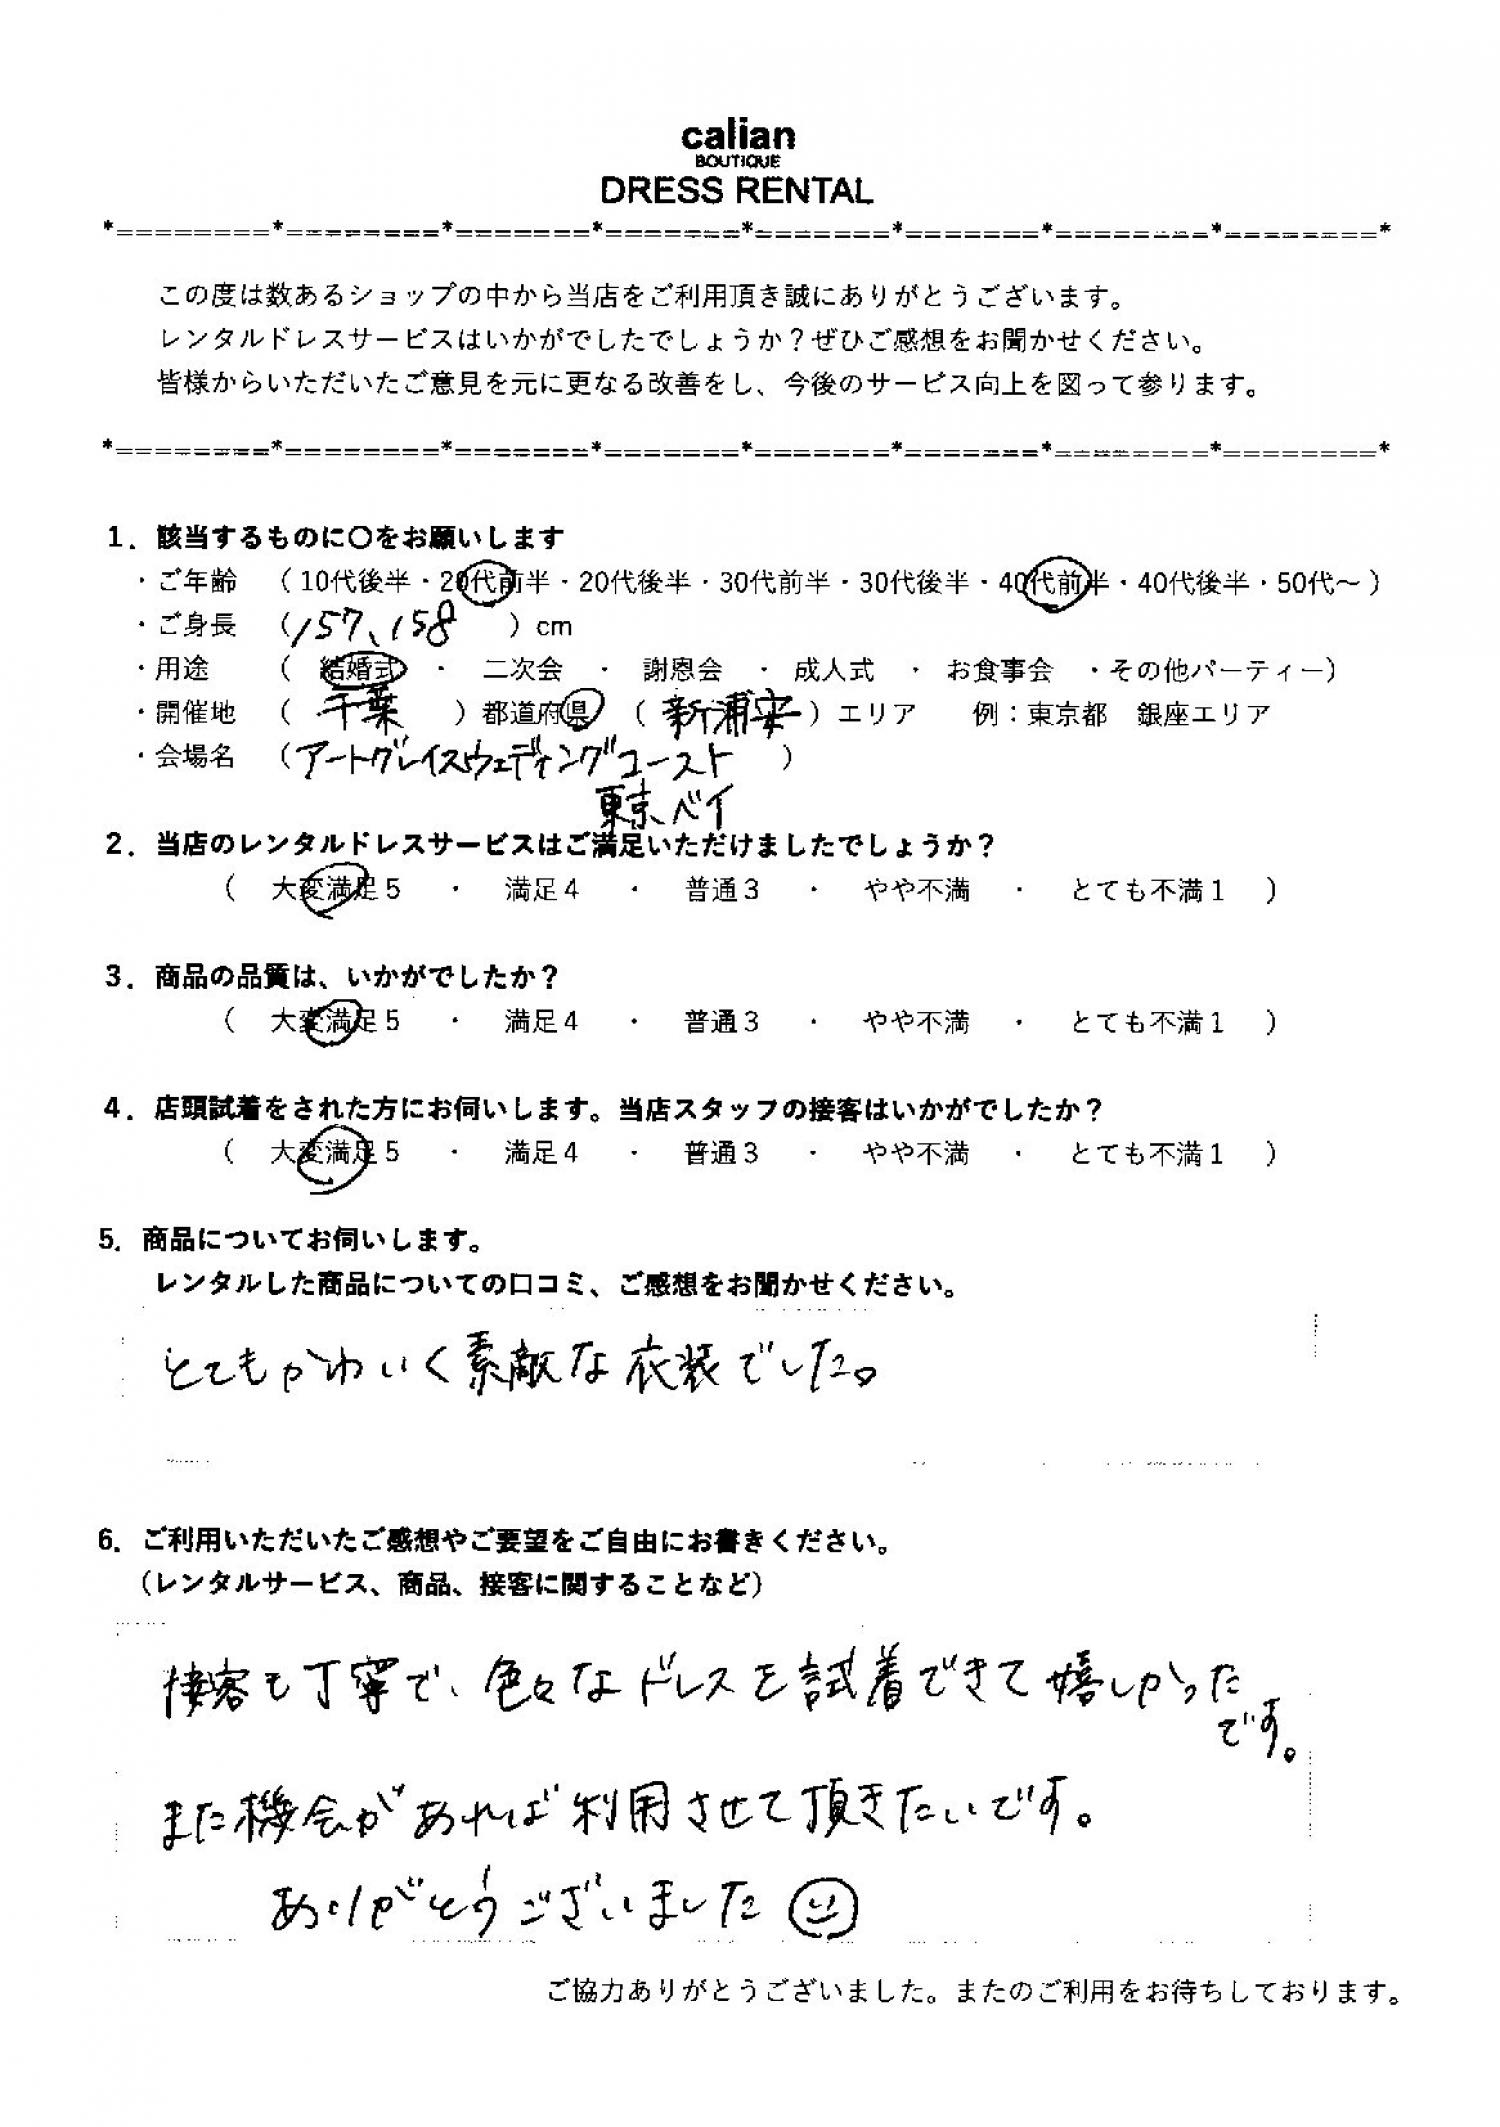 calian
BOUTIQUE
DRESS RENTAL
*========*========*=======*=======*=======*=======*========*========*
この度は数あるショップの中から当店をご利用頂き誠にありがとうございます。
レンタルドレスサービスはいかがでしたでしょうか？ぜひご感想をお聞かせください。
皆様からいただいたご意見を元に更なる改善をし、今後のサービス向上を図って参ります。
*========*========*=======*=======*=======*=======*========*========*
1．該当するものに〇をお願いします
・ご年齢 （10代後半・20代前半・20代後半・30代前半・30代後半・40代前半・40代後半・50代～）
・ご身長 （157、158）cm
・用途 （ 結婚式 ・ 二次会 ・ 謝恩会 ・ 成人式 ・ お食事会 ・その他パーティー）
・開催地 （ 千葉 ）都道府県 （ 新浦安 ）エリア 例：東京都 銀座エリア
・会場名 （アートグレイスウェディングコースト ）
東京ベイ
2．当店のレンタルドレスサービスはご満足いただけましたでしょうか？
（ 大変満足5 ・ 満足4 ・ 普通3 ・ やや不満 ・ とても不満1 ）
3．商品の品質は、いかがでしたか？
（ 大変満足5 ・ 満足4 ・ 普通3 ・ やや不満 ・ とても不満1 ）
4．店頭試着をされた方にお伺いします。当店スタッフの接客はいかがでしたか？
（ 大変満足5 ・ 満足4 ・ 普通3 ・ やや不満 ・ とても不満1 ）
5．商品についてお伺いします。
レンタルした商品についての口コミ、ご感想をお聞かせください。
とてもかわいく素敵な衣装でした。
6．ご利用いただいたご感想やご要望をご自由にお書きください。
（レンタルサービス、商品、接客に関することなど）
接客も丁寧で、色々なドレスを試着できて嬉しかった
です。
また機会があれば利用させて頂きたいです。
ありがとうございました
ご協力ありがとうございました。またのご利用をお待ちしております。